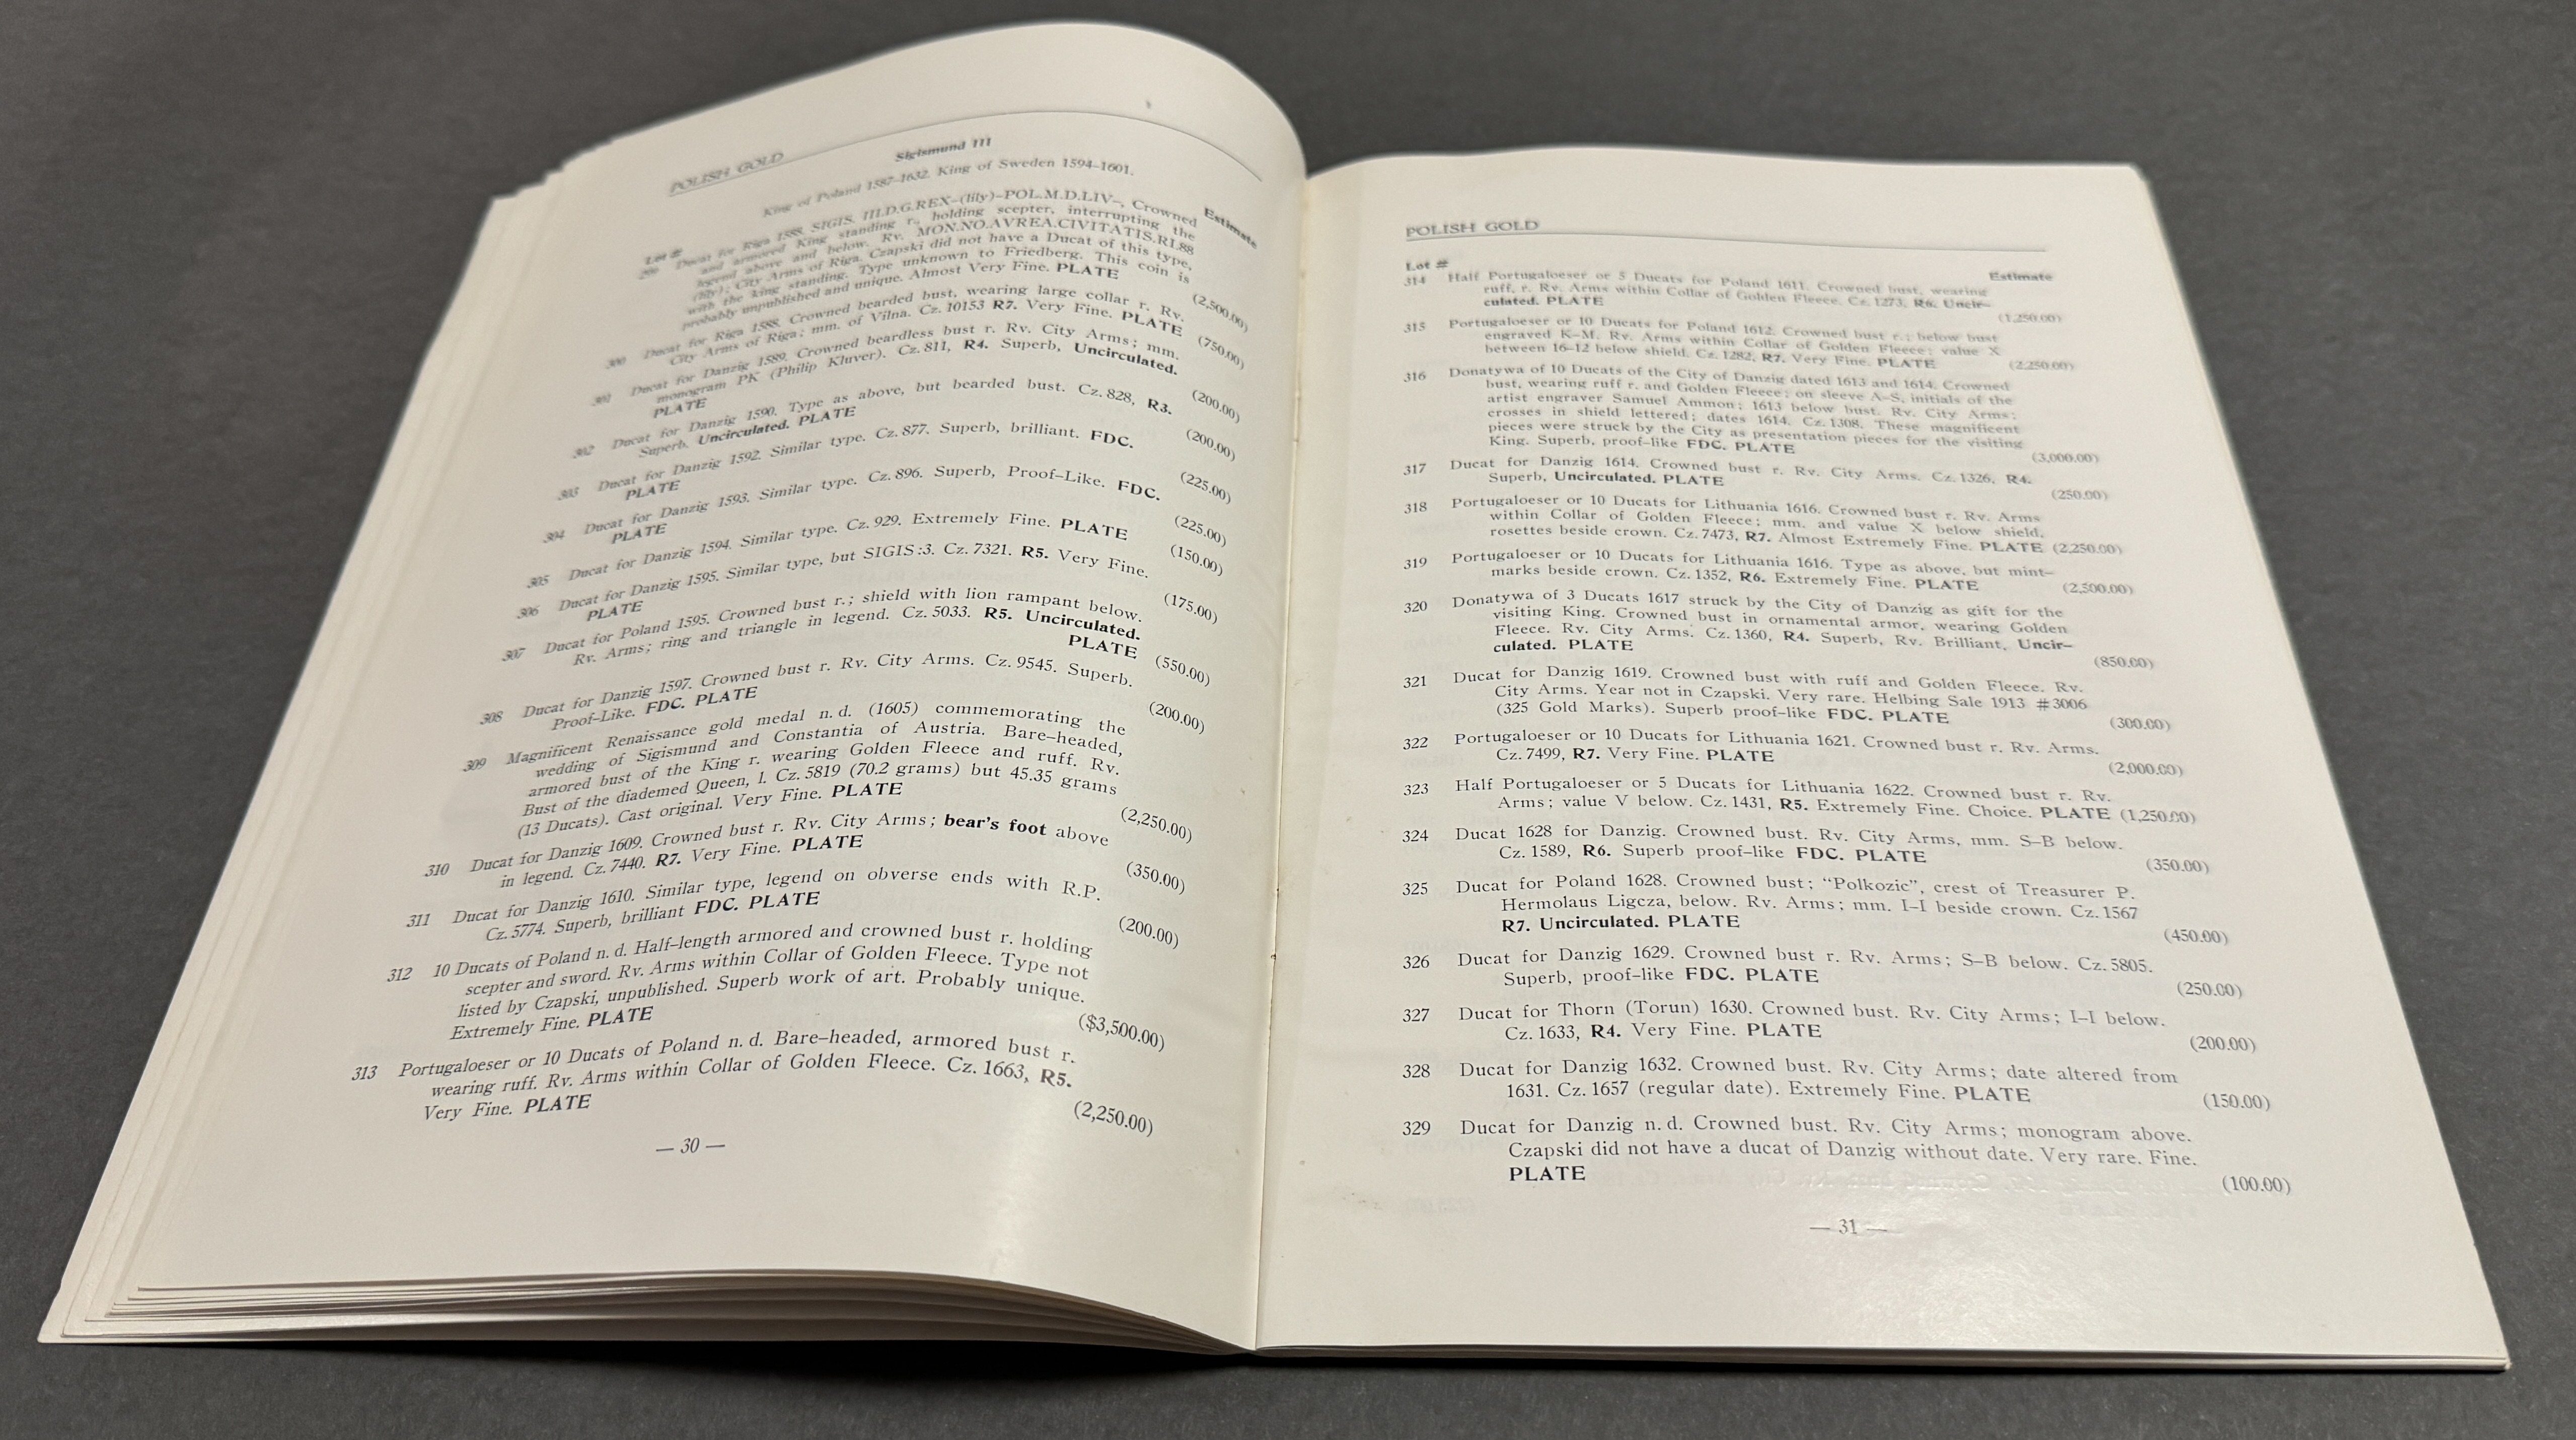 POLISH GOLD
Sigismund III
King of Poland 1587-1632. King of Sweden 1594-1601.
Lot #
Estimate
299 Ducat for Riga 1588. SIGIS. III.D.G.REX-(lily)-POL.M.D.LIV-, Crowned
and armored King standing r., holding scepter, interrupting the
legend above and below. Rv. MON.NO.AVREA.CIVITATIS.RI.88
(lily); City Arms of Riga. Czapski did not have a Ducat of this type,
with the king standing. Type unknown to Friedberg. This coin is
probably unpublished and unique. Almost Very Fine. PLATE
(2,500.00)
300 Ducat for Riga 1588. Crowned bearded bust, wearing large collar r. Rv.
City Arms of Riga; mm. of Vilna. Cz. 10153 R7. Very Fine. PLATE
(750.00)
301 Ducat for Danzig 1589. Crowned beardless bust r. Rv. City Arms; mm.
monogram PK (Philip Kluver). Cz. 811, R4. Superb, Uncirculated.
PLATE
(200.00)
302 Ducat for Danzig 1590. Type as above, but bearded bust. Cz. 828, R3.
Superb. Uncirculated. PLATE
(200.00)
303 Ducat for Danzig 1592. Similar type. Cz. 877. Superb, brilliant. FDC.
PLATE
(225.00)
304 Ducat for Danzig 1593. Similar type. Cz. 896. Superb, Proof-Like. FDC.
PLATE
(225.00)
305 Ducat for Danzig 1594. Similar type. Cz. 929. Extremely Fine. PLATE
(150.00)
306 Ducat for Danzig 1595. Similar type, but SIGIS:3. Cz. 7321. R5. Very Fine.
PLATE
(175.00)
307 Ducat for Poland 1595. Crowned bust r.; shield with lion rampant below.
Rv. Arms; ring and triangle in legend. Cz. 5033. R5. Uncirculated.
PLATE
(550.00)
308 Ducat for Danzig 1597. Crowned bust r. Rv. City Arms. Cz. 9545. Superb.
Proof-Like. FDC. PLATE
(200.00)
309 Magnificent Renaissance gold medal n.d. (1605) commemorating the
wedding of Sigismund and Constantia of Austria. Bare-headed,
armored bust of the King r. wearing Golden Fleece and ruff. Rv.
Bust of the diademed Queen, l. Cz. 5819 (70.2 grams) but 45.35 grams
(13 Ducats). Cast original. Very Fine. PLATE
(2,250.00)
310 Ducat for Danzig 1609. Crowned bust r. Rv. City Arms; bear's foot above
in legend. Cz. 7440. R7. Very Fine. PLATE
(350.00)
311 Ducat for Danzig 1610. Similar type, legend on obverse ends with R.P.
Cz. 5774. Superb, brilliant FDC. PLATE
(200.00)
312 10 Ducats of Poland n.d. Half-length armored and crowned bust r. holding
scepter and sword. Rv. Arms within Collar of Golden Fleece. Type not
listed by Czapski, unpublished. Superb work of art. Probably unique.
Extremely Fine. PLATE
($3,500.00)
313 Portugaloeser or 10 Ducats of Poland n.d. Bare-headed, armored bust r.
wearing ruff. Rv. Arms within Collar of Golden Fleece. Cz. 1663, R5.
Very Fine. PLATE
(2,250.00)
— 30 —
POLISH GOLD
Lot #
Estimate
314 Half Portugaloeser or 5 Ducats for Poland 1611. Crowned bust, wearing
ruff, r. Rv. Arms within Collar of Golden Fleece. Cz. 1273, R6. Uncir-
culated. PLATE
(1,250.00)
315 Portugaloeser or 10 Ducats for Poland 1612. Crowned bust r.; below bust
engraved K-M. Rv. Arms within Collar of Golden Fleece; value X
between 16-12 below shield. Cz. 1282, R7. Very Fine. PLATE
(2,250.00)
316 Donatywa of 10 Ducats of the City of Danzig dated 1613 and 1614. Crowned
bust, wearing ruff r. and Golden Fleece; on sleeve A-S, initials of the
artist engraver Samuel Ammon; 1613 below bust. Rv. City Arms;
crosses in shield lettered; dates 1614. Cz. 1308. These magnificent
pieces were struck by the City as presentation pieces for the visiting
King. Superb, proof-like FDC. PLATE
(3,000.00)
317 Ducat for Danzig 1614. Crowned bust r. Rv. City Arms. Cz. 1326, R4.
Superb, Uncirculated. PLATE
(250.00)
318 Portugaloeser or 10 Ducats for Lithuania 1616. Crowned bust r. Rv. Arms
within Collar of Golden Fleece; mm. and value X below shield,
rosettes beside crown. Cz. 7473, R7. Almost Extremely Fine. PLATE (2,250.00)
319 Portugaloeser or 10 Ducats for Lithuania 1616. Type as above, but mint-
marks beside crown. Cz. 1352, R6. Extremely Fine. PLATE
(2,500.00)
320 Donatywa of 3 Ducats 1617 struck by the City of Danzig as gift for the
visiting King. Crowned bust in ornamental armor, wearing Golden
Fleece. Rv. City Arms. Cz. 1360, R4. Superb, Rv. Brilliant, Uncir-
culated. PLATE
(850.00)
321 Ducat for Danzig 1619. Crowned bust with ruff and Golden Fleece. Rv.
City Arms. Year not in Czapski. Very rare. Helbing Sale 1913 #3006
(325 Gold Marks). Superb proof-like FDC. PLATE
(300.00)
322 Portugaloeser or 10 Ducats for Lithuania 1621. Crowned bust r. Rv. Arms.
Cz. 7499, R7. Very Fine. PLATE
(2,000.00)
323 Half Portugaloeser or 5 Ducats for Lithuania 1622. Crowned bust r. Rv.
Arms; value V below. Cz. 1431, R5. Extremely Fine. Choice. PLATE (1,250.00)
324 Ducat 1628 for Danzig. Crowned bust. Rv. City Arms, mm. S-B below.
Cz. 1589, R6. Superb proof-like FDC. PLATE
(350.00)
325 Ducat for Poland 1628. Crowned bust; "Polkozic", crest of Treasurer P.
Hermolaus Ligcza, below. Rv. Arms; mm. I-I beside crown. Cz. 1567
R7. Uncirculated. PLATE
(450.00)
326 Ducat for Danzig 1629. Crowned bust r. Rv. Arms; S-B below. Cz. 5805.
Superb, proof-like FDC. PLATE
(250.00)
327 Ducat for Thorn (Torun) 1630. Crowned bust. Rv. City Arms; I-I below.
Cz. 1633, R4. Very Fine. PLATE
(200.00)
328 Ducat for Danzig 1632. Crowned bust. Rv. City Arms; date altered from
1631. Cz. 1657 (regular date). Extremely Fine. PLATE
(150.00)
329 Ducat for Danzig n.d. Crowned bust. Rv. City Arms; monogram above.
Czapski did not have a ducat of Danzig without date. Very rare. Fine.
PLATE
(100.00)
— 31 —